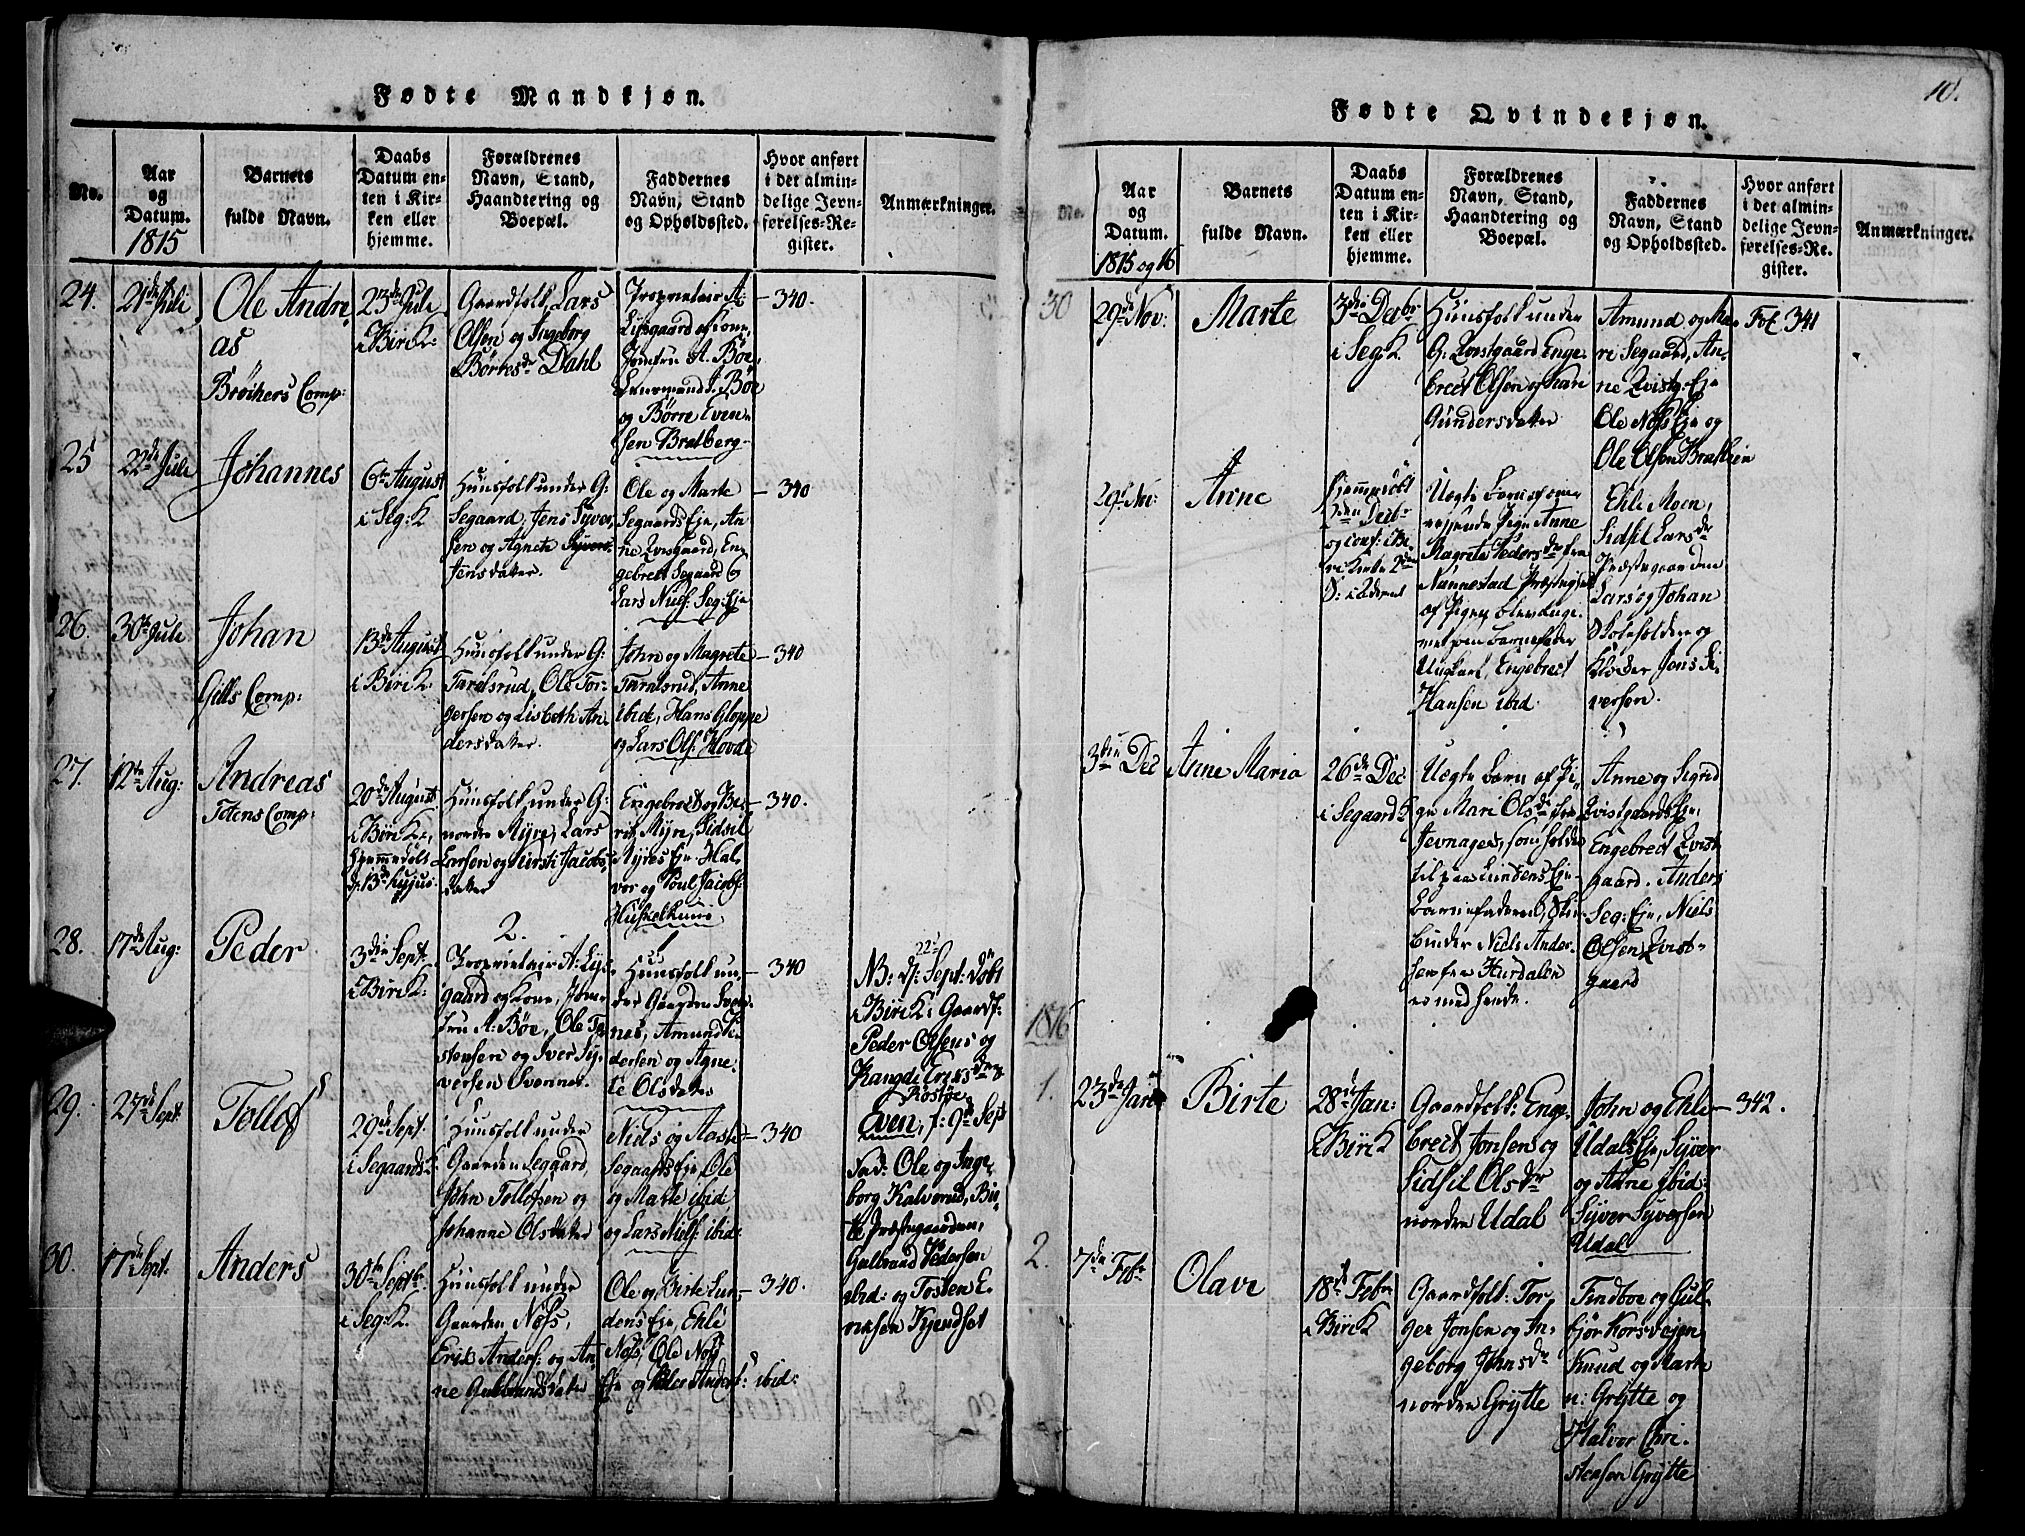 Fødte Mandkjøn.
No.
Aar
og
Datum.
1815
Barnets
fulde Navn.
Daabs
Datum en-
ten i Kir-
ken eller
hjemme.
Forældrenes
Navn, Stand,
Haandtering og
Boepæl.
Faddernes
Navn, Stand
og Opholdssted.
Hvor anført
i det almin-
delige Jevn-
førelses-Re-
gister.
Anmærkninger.
24.
21de Juli
Ole Andre
as
Brøikers Comp:
23de Jule
i Biri K:
Gaardfolk Lars
Olsen og Ingeborg
Børresdr Dahl
Proprietair A:
Lysgaard og Kone,
Jomfru A. Bøe,
Lensmand J. Bøe
og Børre Even-
sen Bratberg
- 340.
25
22de Jule
Johannes
6te August
i Seg: K
Huusfolk under G:
Segaard, Jens Syver-
sen og Agnete
Jensdatter.
Ole og Marte
Segaards Eje, An
ne Qvisgaard, En
gebret Segaard og
Lars Niels: Seg: Eje
- 340
26.
30te Jule
Johan
Gills Comp:
13de August
i Biri K.
Huusfolk under G:
Taralsrud, Ole Tor-
gersen og Lisbeth An
dersdatter.
John og Magrete
Taralsrud, Anne
ibid, Hans Gloppe
og Lars Ols: Hovde
- 340
27.
12te Aug:
Andreas
Totens Comp:
20de August
i Biri K.,
hjemmedøbt
d: 13de hujus.
Huusfolk under G:
nordre Myre, Lars
Larsen og Kirsti Jacobs
datter
Engebret og Be-
rit Myre, Sidsil
Myres Eje, Hal
vor og Poul Jacobs:
- 340.
28.
17de Aug:
Peder
3die Sept.
i Biri K:
2.
Proprietair A: Lys-
gaard og Kone, Jom
fru A: Bøe, Ole To
stensen og Iver Sy-
versen Svennes.
1
Huusfolk un
der Gaarden Sven
nes, Amund
dersen og Agne
te Olsdatter
- 340
NB: d: 22de Sept: døbt
i Biri K: Gaardf:
Peder Olsens og
Even, f: 9de Sept
Fad: Ole og Inge
borg Kalverud, Bir
te Præstegaarden,
Gulbrand Pedersen
ibid: og Tosten E
riksen Kjendset
29.
27de Sept:
Tollof
29de Sept.
i Segaards K.
Huusfolk under
Gaarden Segaard,
John Tollofsen og
Johanne Olsdatter
Niels og Aaste
Segaards Eje, Ole
og Marte ibid
og Lars Niels: ibid:
- 340
30.
17de Sept.
Anders
30te Septbr
i Seg: K.
Huusfolk under
Gaarden Næss,
Erik Anders: og An
ne Gulbrandsdatter
Ole og Birte Lun-
dens Eje, Ehle
Næss, Ole Næss
Eje og Peder Anders: ibid:
- 340.
10.
Fødte Qvindekjøn.
No.
Aar
og
Datum.
1815 og 16
Barnets
fulde Navn.
Daabs
Datum en-
ten i Kir-
ken eller
hjemme.
Forældrenes
Navn, Stand,
Haandtering og
Boepæl.
Faddernes
Navn, Stand
og Opholdssted.
Hvor anført
i det almin-
delige Jevn-
førelses-Re-
gister.
Anmærkninger.
30
29de Nov:
Marte
3die Decbr
i Seg: K
Huusfolk under
G: Qvistgaard Enge-
brect Olsen og Kari
Gundersdatter
Amund og Ma-
ri Segaard, An-
ne Qvistg: Eje
Ole Næss Eje og
Ole Olsen Bratlien
Fol 341
29de Nov:
Anne
Hjemmedøbt
Decbr
og conf: i Bi
ri Kirke
Uægte Barn af om
reisende Pige Anne
Magrete Pedersdr fra
Nannestad Præstegjeld
af Pigen
Ungkarl, Engebrect
Hansen ibid
Ehle Moen,
Sidsil Larsdr
Præstegaarden
Lars og Johan
Skoleholder og
Klokker Jens Si
versen.
3die Dec
Anne Maria
26de Dec:
i Segaard K
Uægte Barn af Pi
ge Mari Olsdr fra
Jevnager, som holder
til paa Lundens Eje
Barnefaderen, Skin
binder Niels Ander-
sen fra Hurdalen
Anne og Sigrid
Qvistgaards Eje,
Engebrect Qvist
gaard. Anders
Seg: Eje, Niels
Olsen Qvist-
gaard
1816
1.
23de Jan
Birte
28de Jan:
i Biri K
Gaardfolk: Enge-
brect Jonsen og
Sidsil Olsdr
nordre Udal
John og Ehle
Udals Eje, Syver
og Anne ibid:
Syver Syversen
Udal
- 342.
2.
7de Febr
Olave
18de Febr
i Biri K
Gaardfolk: Tor-
ger Jonsen og In-
geborg Johnsdr
nordre Grytte
Findboe og Gul-
bjør Korsvejen
Knud og Marte
n: Grytte og
Halvor Chri-
stensen Grytte